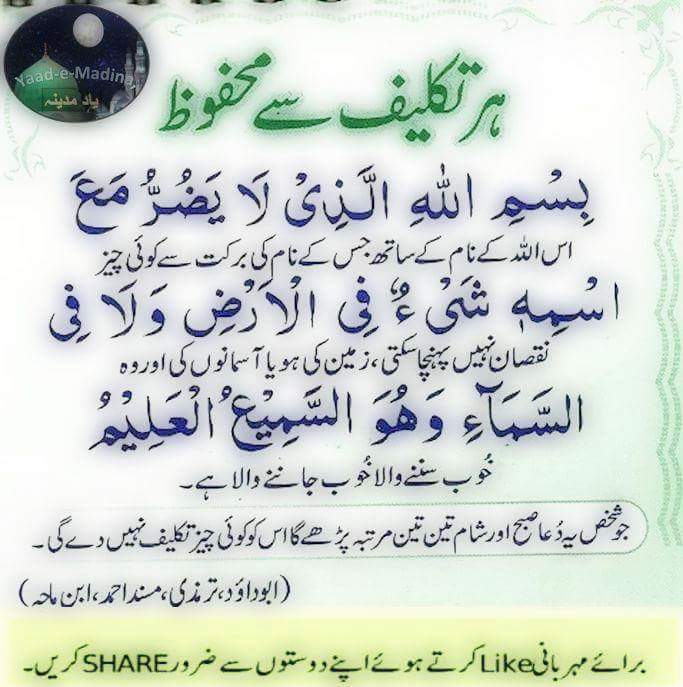 Yaad-e-Madina
یاد مدینہ
ہر تکلیف سے محفوظ
بِسْمِ اللهِ الَّذِیْ لَا یَضُرُّ مَعَ
اس اللہ کے نام کے ساتھ جس کے نام کی برکت سے کوئی چیز
اسْمِهٖ شَیْءٌ فِی الْاَرْضِ وَلَا فِی
نقصان نہیں پہنچا سکتی، زمین کی ہو یا آسمانوں کی اور وہ
السَّمَآءِ وَهُوَ السَّمِیْعُ الْعَلِیْمُ
خُوب سننے والا خُوب جاننے والا ہے۔
جو شخص یہ دُعا صبح اور شام تین تین مرتبہ پڑھے گا اس کو کوئی چیز تکلیف نہیں دے گی۔
(ابوداؤد، ترمذی، مسند احمد، ابن ماجہ)
برائے مہربانی Like کرتے ہوئے اپنے دوستوں سے ضرور SHARE کریں۔